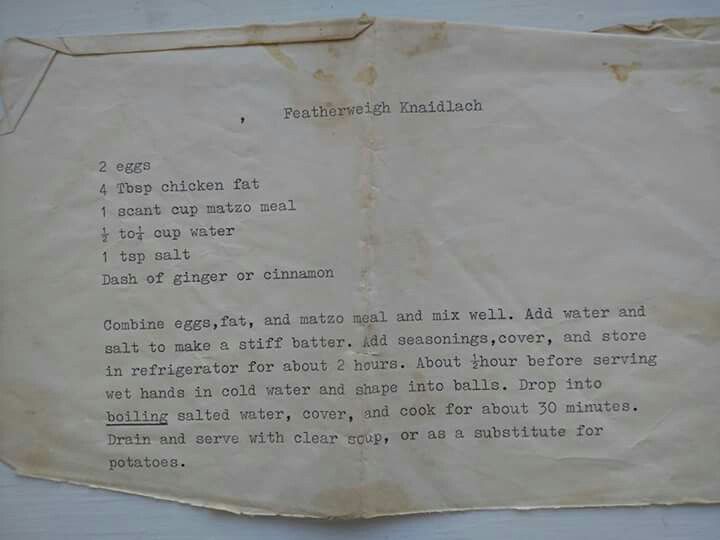 , Featherweigh Knaidlach
2 eggs
4 Tbsp chicken fat
1 scant cup matzo meal
½ to¼ cup water
1 tsp salt
Dash of ginger or cinnamon
Combine eggs,fat, and matzo meal and mix well. Add water and
salt to make a stiff batter. Add seasonings,cover, and store
in refrigerator for about 2 hours. About ½hour before serving
wet hands in cold water and shape into balls. Drop into
boiling salted water, cover, and cook for about 30 minutes.
Drain and serve with clear soup, or as a substitute for
potatoes.